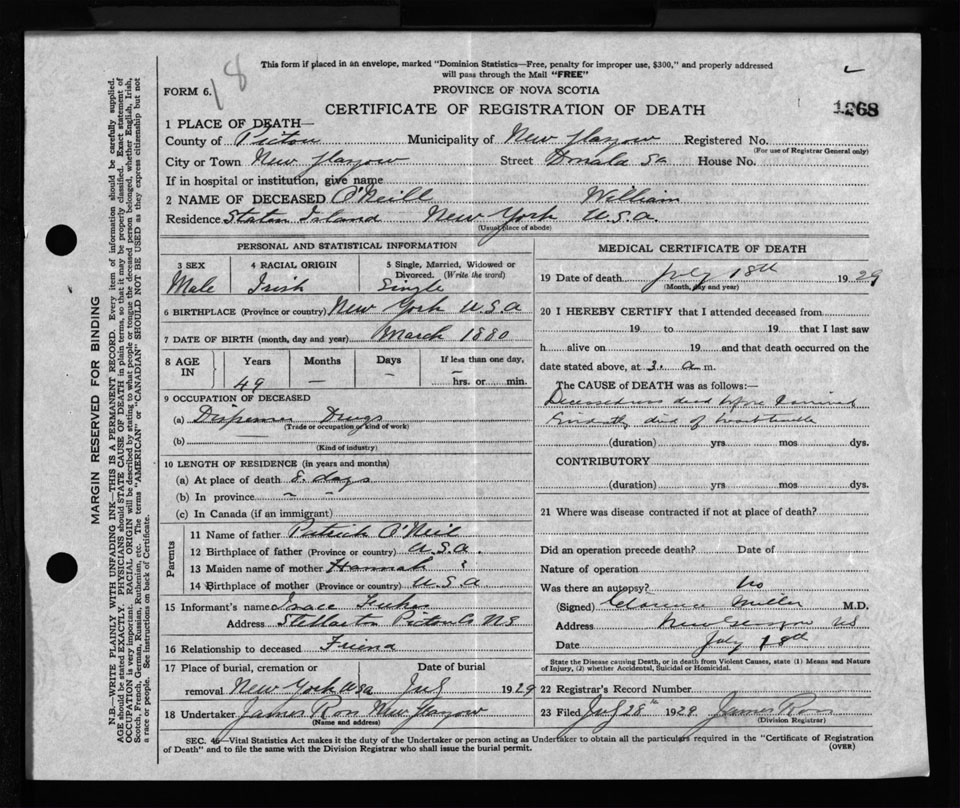 18
This form if placed in an envelope, marked "Dominion Statistics—Free, penalty for improper use, $300," and properly addressed
will pass through the Mail "FREE"
FORM 6.
PROVINCE OF NOVA SCOTIA
CERTIFICATE OF REGISTRATION OF DEATH
1268
1 PLACE OF DEATH—
County of Pictou Municipality of New Glasgow Registered No.
(For use of Registrar General only)
City or Town New Glasgow Street Donald St House No.
If in hospital or institution, give name
2 NAME OF DECEASED O'Neill William
Residence Staten Island New York U.S.A.
(Usual place of abode)
PERSONAL AND STATISTICAL INFORMATION
3 SEX 4 RACIAL ORIGIN 5 Single, Married, Widowed or
Divorced. (Write the word)
Male Irish Single
6 BIRTHPLACE (Province or country) New York U.S.A
7 DATE OF BIRTH (month, day and year) March 1880
8 AGE IN Years Months Days If less than one day,
49 — — — hrs. or min.
9 OCCUPATION OF DECEASED
(a) Dispenser Drugs
(Trade or occupation or kind of work)
(b)
(Kind of industry)
10 LENGTH OF RESIDENCE (in years and months)
(a) At place of death 8. days
(b) In province ~ ~
(c) In Canada (if an immigrant)
Parents
11 Name of father Patrick O'Neil
12 Birthplace of father (Province or country) U.S.A.
13 Maiden name of mother Hannah ?
14 Birthplace of mother (Province or country) U.S.A
15 Informant's name Isaac
Address Stellarton Pictou Co NS
16 Relationship to deceased Friend
17 Place of burial, cremation or Date of burial
removal New York USA Jul 1929
18 Undertaker James Ross New Glasgow
(Name and address)
MEDICAL CERTIFICATE OF DEATH
19 Date of death July 18th 1929
(Month, day and year)
20 I HEREBY CERTIFY that I attended deceased from
19 to 19 that I last saw
h alive on 19 and that death occurred on the
date stated above, at 3. a.m.
The CAUSE of DEATH was as follows:—
Deceased was dead before I arrived
Evidently died of heart trouble
(duration) yrs mos dys.
CONTRIBUTORY
(duration) yrs mos dys.
21 Where was disease contracted if not at place of death?
Did an operation precede death? Date of
Nature of operation
Was there an autopsy? No
(Signed) Clarence Miller M.D.
Address New Glasgow NS
Date July 18th
State the Disease causing Death, or in death from Violent Causes, state (1) Means and Nature
of Injury, (2) whether Accidental, Suicidal or Homicidal.
22 Registrar's Record Number
23 Filed July 28th 1929 James Ross
(Division Registrar)
SEC. 46—Vital Statistics Act makes it the duty of the Undertaker or person acting as Undertaker to obtain all the particulars required in the "Certificate of Registration
of Death" and to file the same with the Division Registrar who shall issue the burial permit.
(OVER)
MARGIN RESERVED FOR BINDING
N.B.—WRITE PLAINLY WITH UNFADING INK—THIS IS A PERMANENT RECORD. Every item of information should be carefully supplied.
AGE should be stated EXACTLY. PHYSICIANS should STATE CAUSE OF DEATH in plain terms, so that it may be properly classified. Exact statement of
OCCUPATION is very important. RACIAL ORIGIN will be described by stating to what people or tongue the deceased person belonged, whether English, Irish,
Scotch, French, German, Russian, Ruthenian, etc. The terms "AMERICAN" or "CANADIAN" SHOULD NOT BE USED as they express citizenship but not
a race or people. See instructions on back of Certificate.